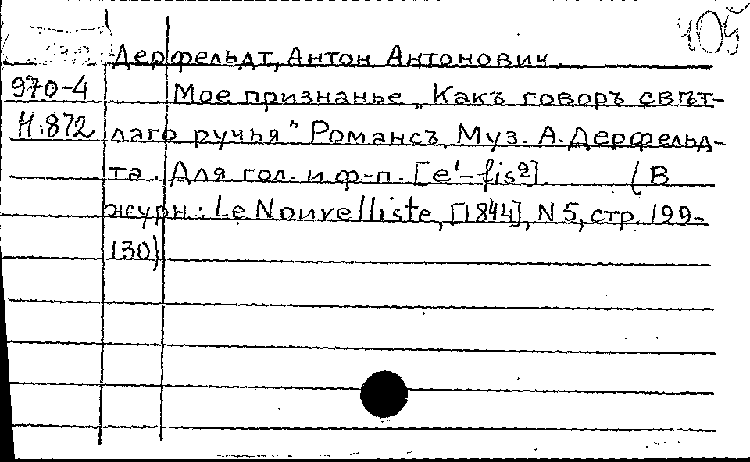 405
Дерфельдт, Антон Антонович.
970-4 Мое признанье „Какъ говоръ свѣт-
Н.872 лаго ручья" Романсъ. Муз. А. Дерфельд-
та. Для гол. и ф-п. [e¹-fis²]. (В
журн.: Le Nouvelliste, [1844], N 5, стр. 129-
130)